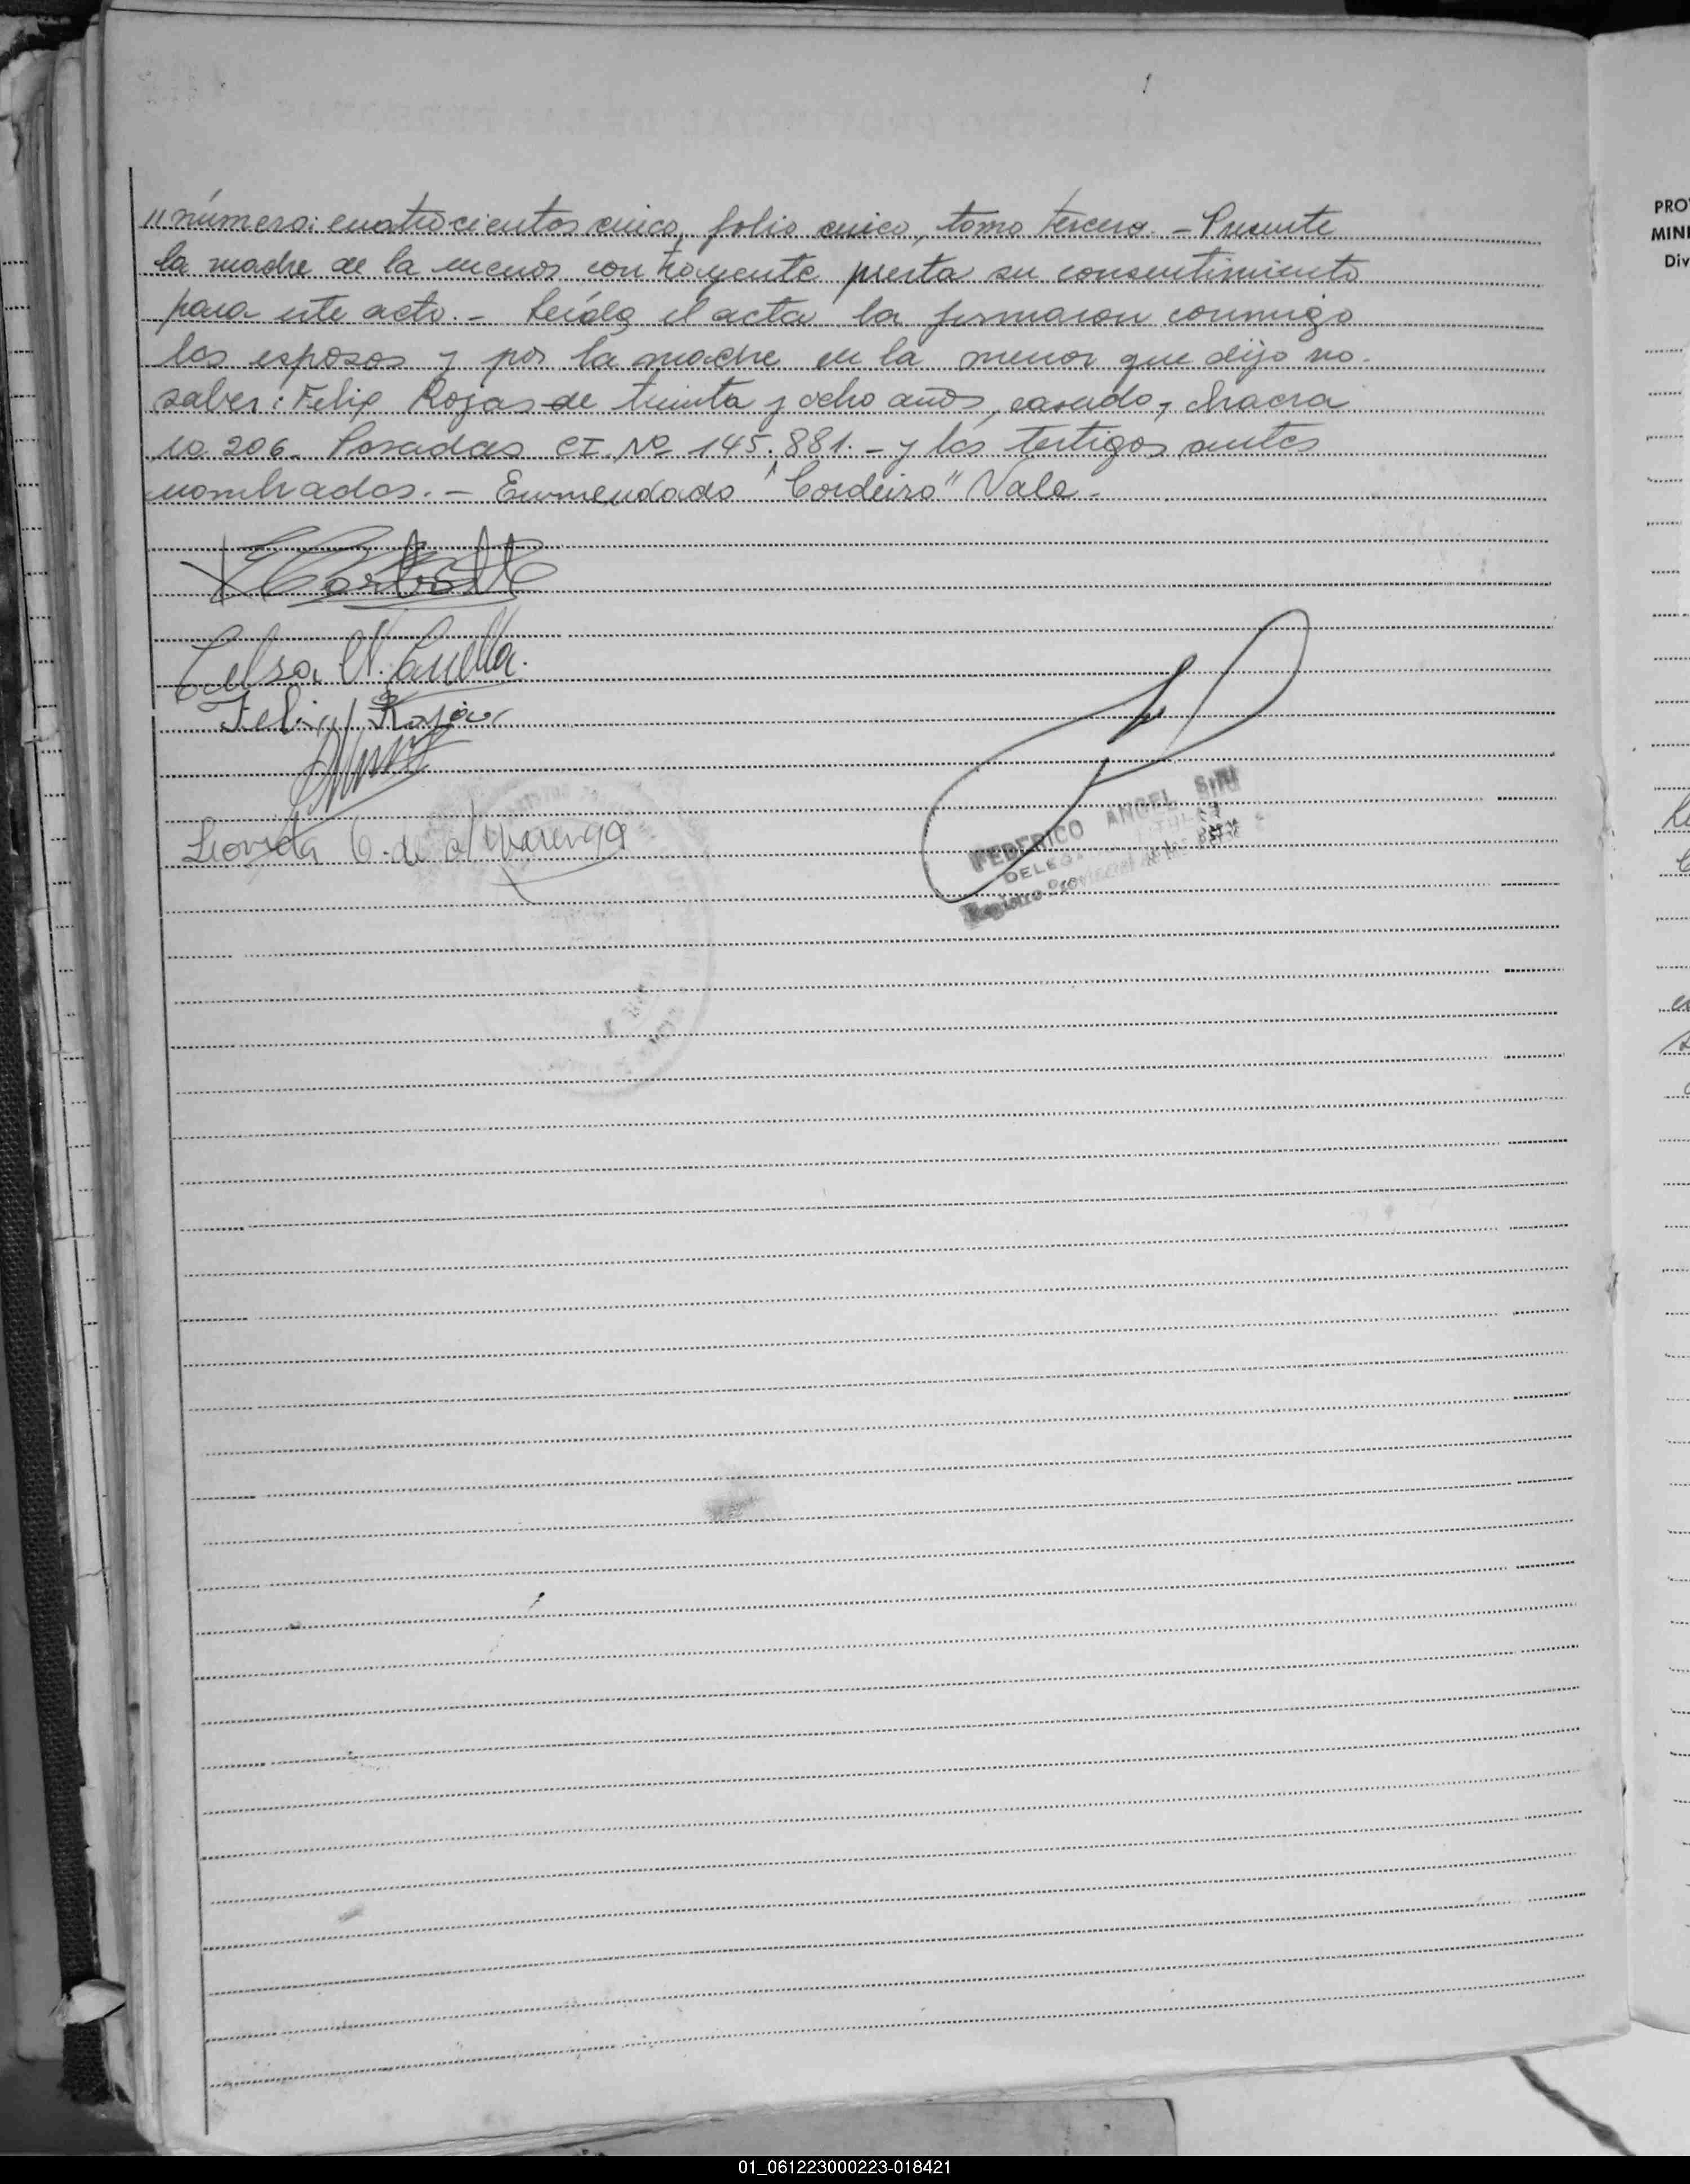 " número: cuatrocientos cinco, folio cinco, tomo tercero. - Presente
la madre de la menor contrayente presta su consentimiento
para este acto. - Leída el acta la firmaron conmigo
los esposos y por la madre de la menor que dijo no
saber: Felix Rojas de treinta y ocho años, casado, chacra
no 206. Posadas CI. Nº 145.881. - y los testigos antes
nombrados. - Enmendado "Cordeiro" Vale -
Celsa N. Cuella.
Felix Rojas
C. de Alvarenga
FEDERICO ANGEL
DELEGA TITULAR
Registro Provincial de las
PRO
MINI
Div
01_061223000223-018421